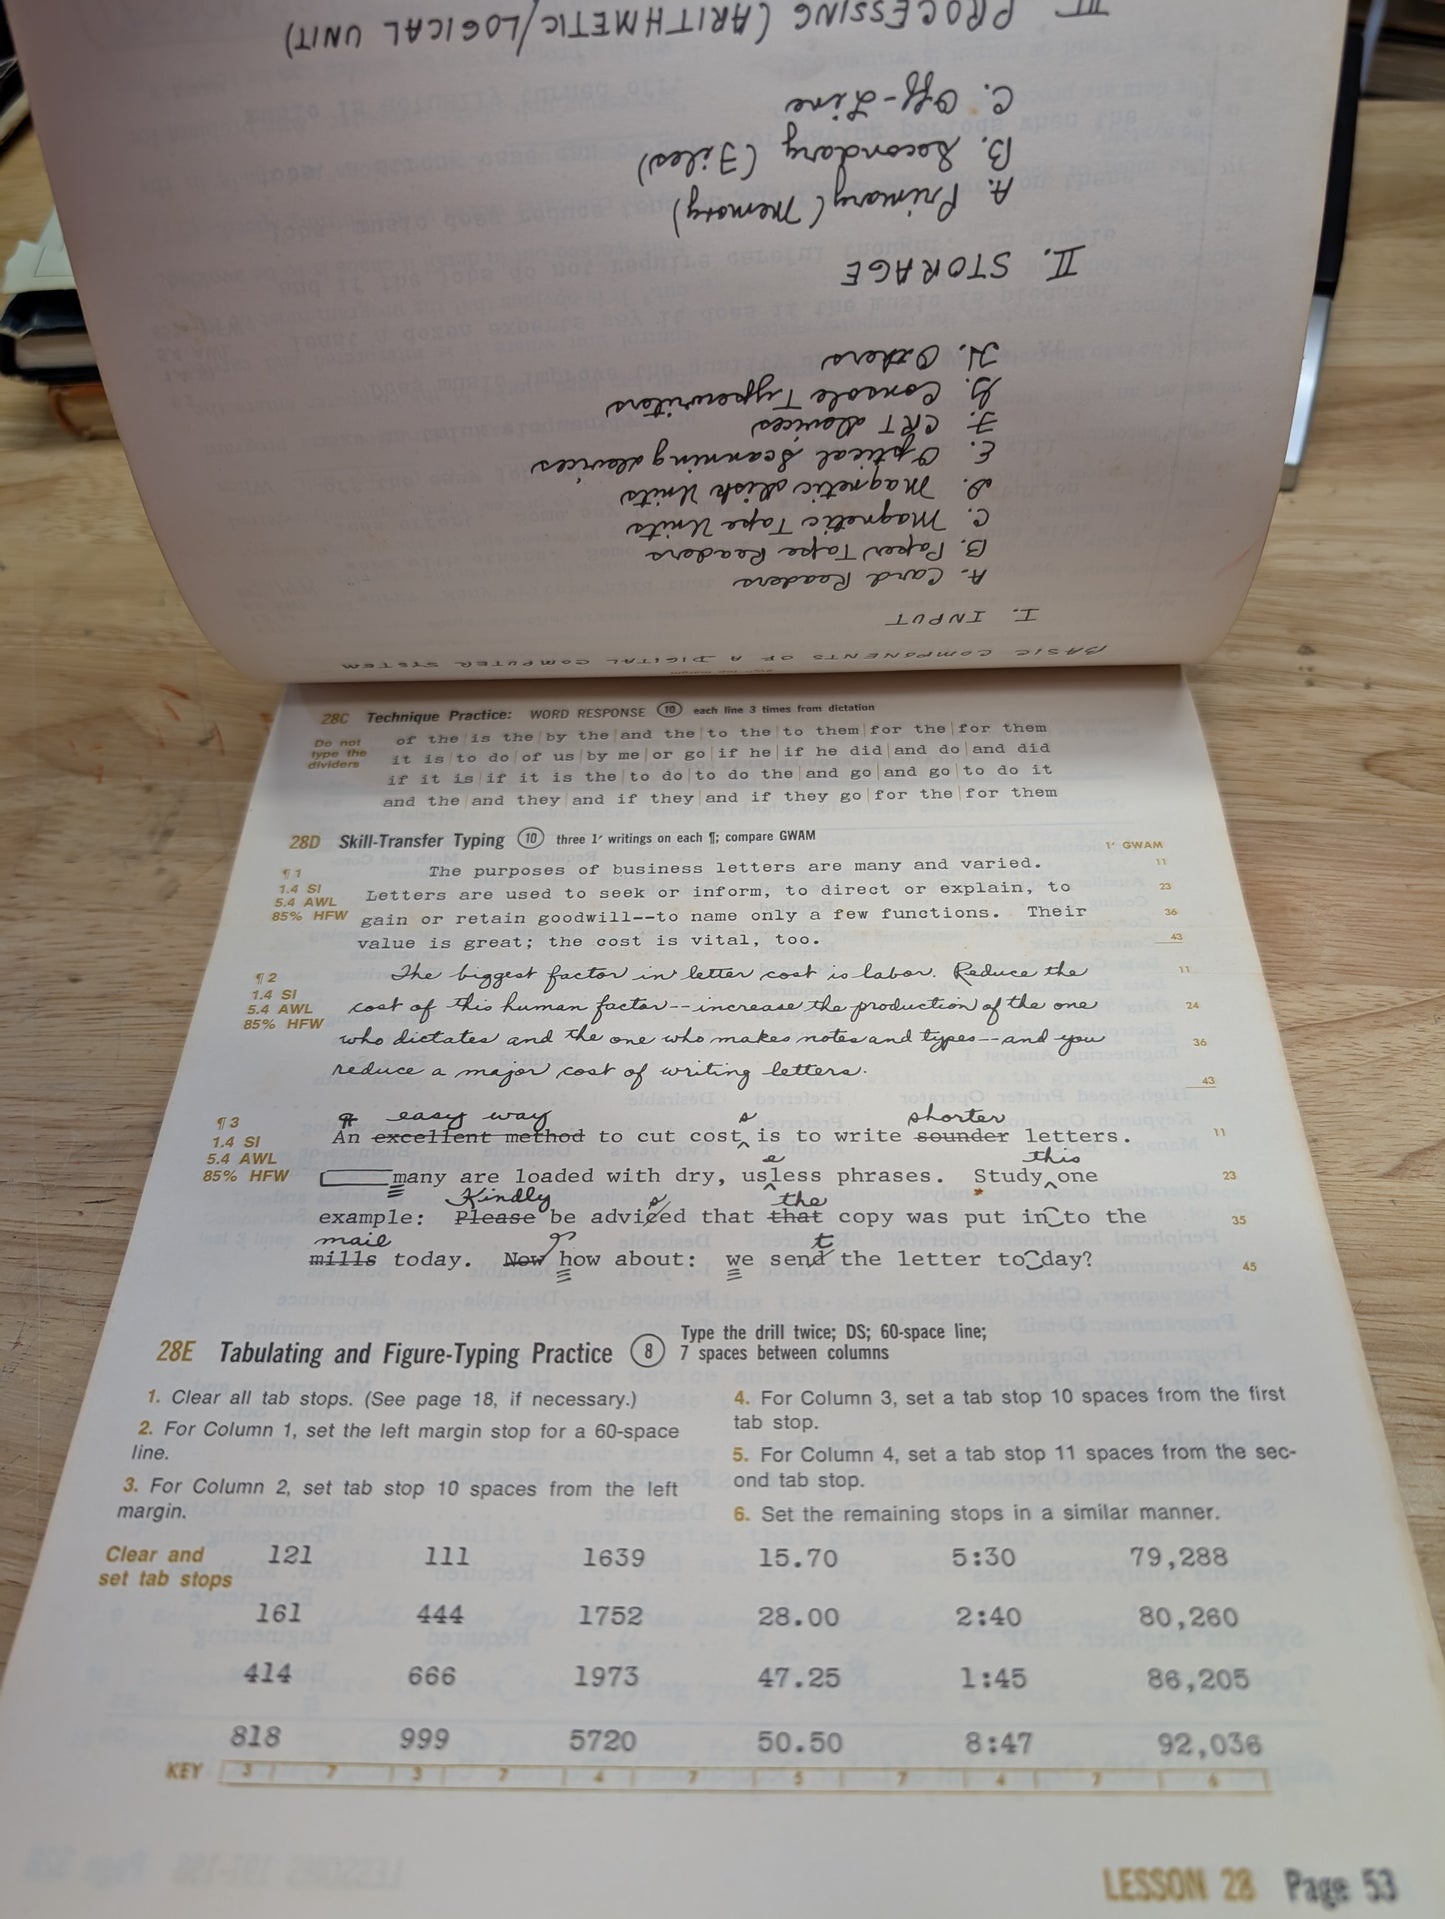 BASIC COMPONENTS OF A DIGITAL COMPUTER SYSTEM
I. INPUT
A. Card Readers
B. Paper Tape Readers
C. Magnetic Tape Units
D. Magnetic Disk Units
E. Optical Scanning devices
F. CRT devices
G. Console Typewriters
H. Others
II. STORAGE
A. Primary (Memory)
B. Secondary (Files)
C. Off-Line
III PROCESSING (ARITHMETIC/LOGICAL UNIT)
28C Technique Practice: WORD RESPONSE 10 each line 3 times from dictation
Do not
type the
dividers
of the|is the|by the|and the|to the|to them|for the|for them
it is|to do|of us|by me|or go|if he|if he did|and do|and did
if it is|if it is the|to do|to do the|and go|and go|to do it
and the|and they|and if they|and if they go|for the|for them
28D Skill-Transfer Typing 10 three 1' writings on each ¶; compare GWAM
1' GWAM
¶ 1
1.4 SI
5.4 AWL
85% HFW
The purposes of business letters are many and varied. 11
Letters are used to seek or inform, to direct or explain, to 23
gain or retain goodwill--to name only a few functions. Their 36
value is great; the cost is vital, too. 43
¶ 2
1.4 SI
5.4 AWL
85% HFW
The biggest factor in letter cost is labor. Reduce the 11
cost of this human factor--increase the production of the one 24
who dictates and the one who makes notes and types--and you 36
reduce a major cost of writing letters. 43
¶ 3
1.4 SI
5.4 AWL
85% HFW
easy way s shorter
An excellent method to cut cost is to write sounder letters. 11
e this
many are loaded with dry, usless phrases. Study one 23
Kindly s the
example: Please be adviced that that copy was put in to the 35
mail t
mills today. Now how about: we send the letter to day? 45
28E Tabulating and Figure-Typing Practice 8 Type the drill twice; DS; 60-space line;
7 spaces between columns
1. Clear all tab stops. (See page 18, if necessary.)
2. For Column 1, set the left margin stop for a 60-space
line.
3. For Column 2, set tab stop 10 spaces from the left
margin.
4. For Column 3, set a tab stop 10 spaces from the first
tab stop.
5. For Column 4, set a tab stop 11 spaces from the sec-
ond tab stop.
6. Set the remaining stops in a similar manner.
Clear and
set tab stops
121 111 1639 15.70 5:30 79,288
161 444 1752 28.00 2:40 80,260
414 666 1973 47.25 1:45 86,205
818 999 5720 50.50 8:47 92,036
KEY 3 7 3 7 4 7 5 7 4 7 6
LESSON 28 Page 53